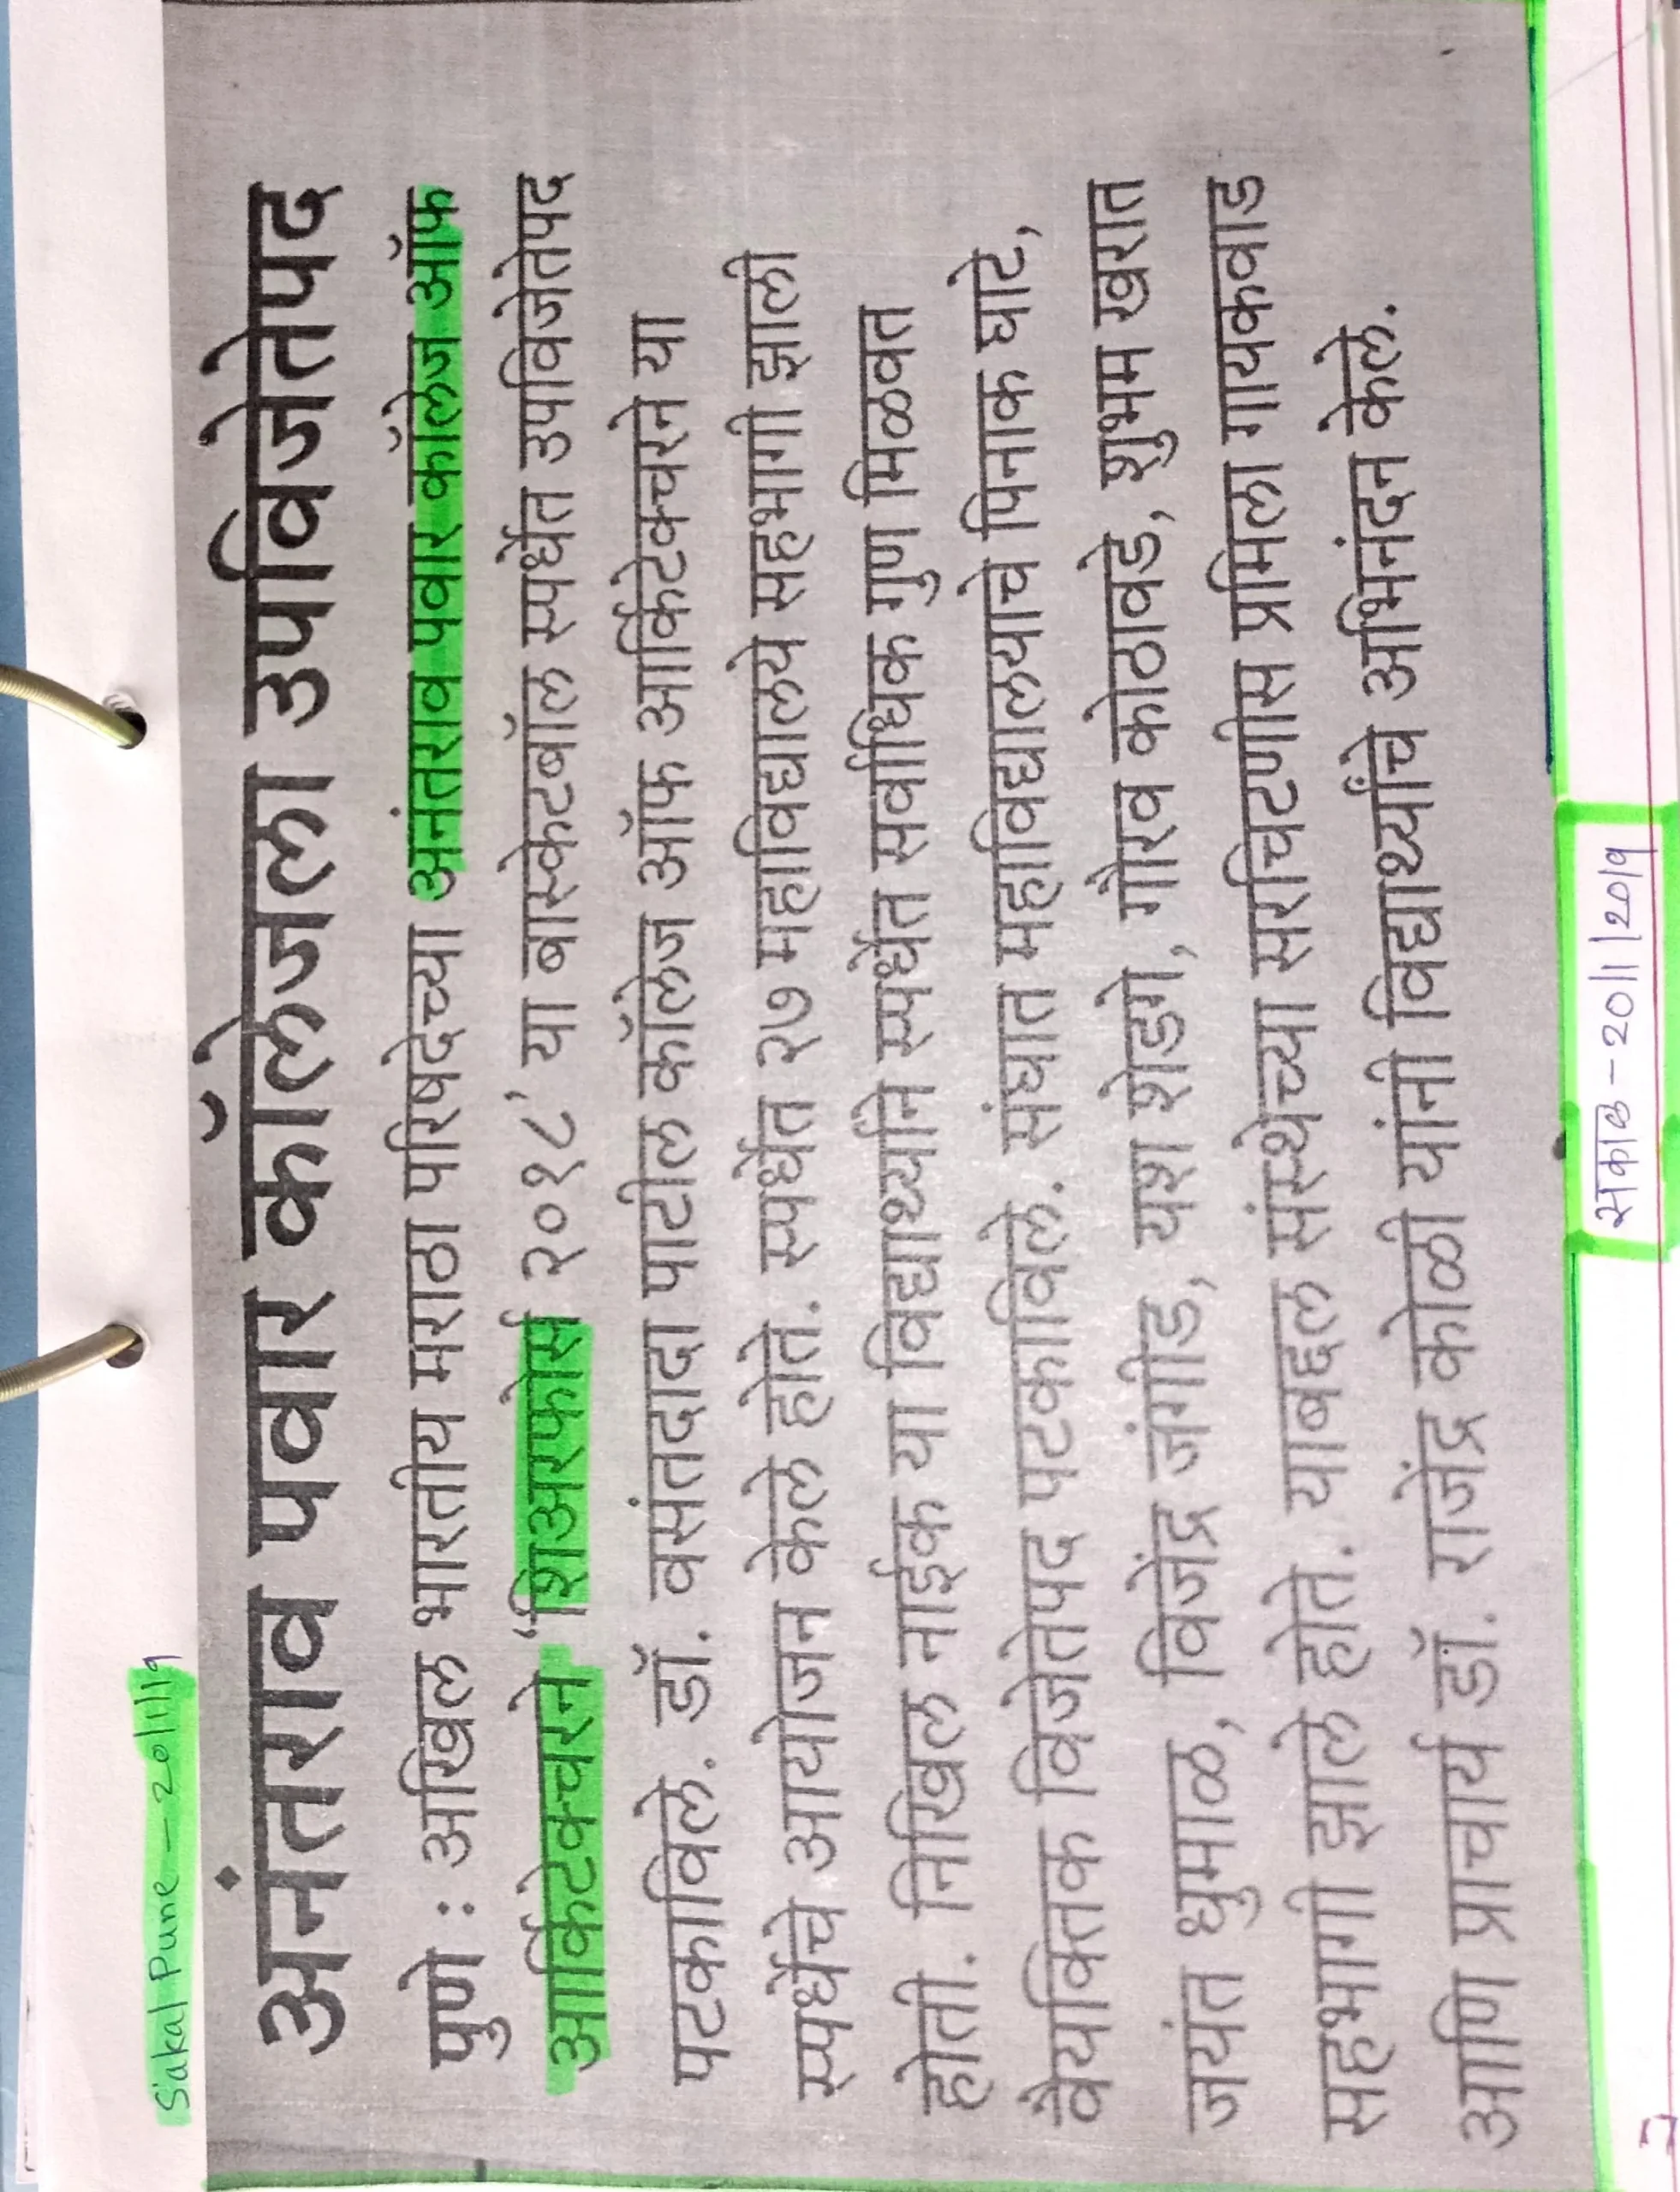 Sakal Pune - 20/1/19
अनंतराव पवार कॉलेजला उपविजेतेपद
पुणे : अखिल भारतीय मराठा परिषदेच्या अनंतराव पवार कॉलेज ऑफ
आर्किटेक्चरने ‘शिअरफोर्स २०१८’ या बास्केटबॉल स्पर्धेत उपविजेतेपद
पटकाविले. डॉ. वसंतदादा पाटील कॉलेज ऑफ आर्किटेक्चरने या
स्पर्धेचे आयोजन केले होते. स्पर्धेत २७ महाविद्यालये सहभागी झाली
होती. निखिल नाईक या विद्यार्थ्याने स्पर्धेत सर्वाधिक गुण मिळवत
वैयक्तिक विजेतेपद पटकाविले. संघात महाविद्यालयाचे पिनाक घाटे,
जयंत धुमाळ, विजेंद्र जंगीड, यश शेडगे, गौरव कोठावडे, शुभम खरात
सहभागी झाले होते. याबद्दल संस्थेच्या सरचिटणीस प्रमिला गायकवाड
आणि प्राचार्य डॉ. राजेंद्र कोळी यांनी विद्यार्थ्यांचे अभिनंदन केले.
सकाळ - 20/1/2019